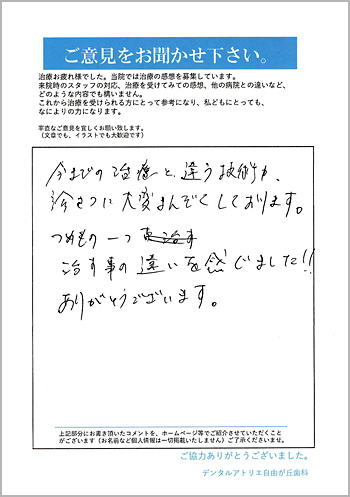 ご意見をお聞かせ下さい。
治療お疲れ様でした。当院では治療の感想を募集しています。
来院時のスタッフの対応、治療を受けてみての感想、他の病院との違いなど、
どのような内容でも構いません。
これから治療を受けられる方にとって参考になり、私どもにとっても、
なによりの力になります。
率直なご意見を宜しくお願い致します。
(文章でも、イラストでも大歓迎です)
今までの治療と違う技術力、
大変まんぞくしております。
つめもの一つ
治す事の違いを感じました!!
ありがとうございます。
上記部分にお書き頂いたコメントを、ホームページ等でご紹介させていただくこと
がございます(お名前など個人情報は一切掲載いたしません)ご了承くださいませ。
ご協力ありがとうございました。
デンタルアトリエ自由が丘歯科